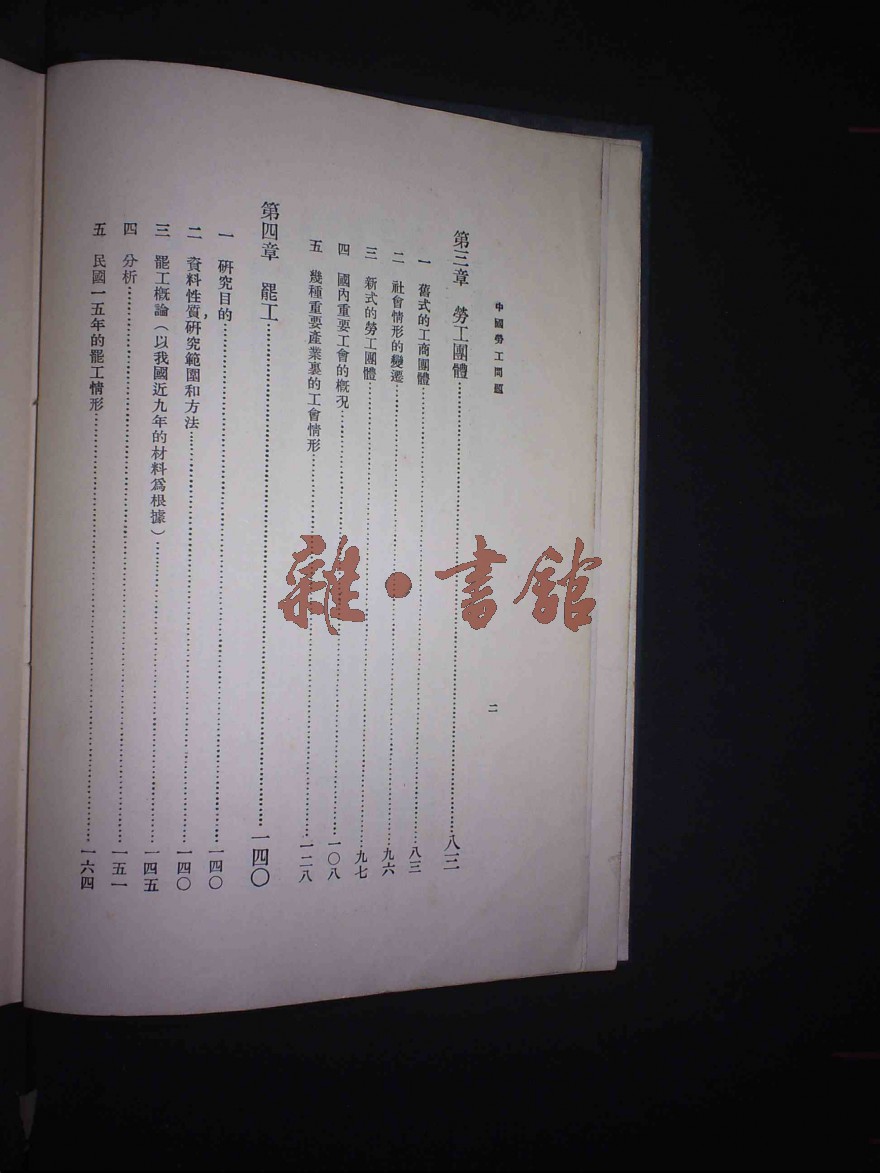 中國勞工問題
二
第三章 勞工團體……八三
一 舊式的工商團體……八三
二 社會情形的變遷……九六
三 新式的勞工團體……九七
四 國內重要工會的概況……一〇八
五 幾種重要產業裏的工會情形……一二八
第四章 罷工……一四〇
一 研究目的……一四〇
二 資料性質，研究範圍和方法……一四〇
三 罷工概論（以我國近九年的材料爲根據）……一四五
四 分析……一五一
五 民國一五年的罷工情形……一六四
雜·書館